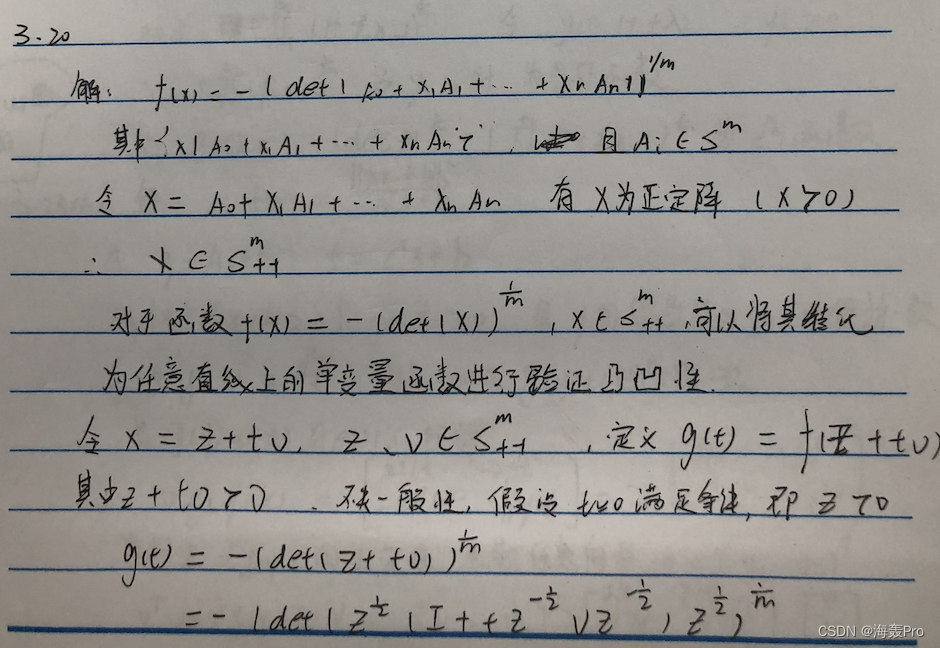 3.20
解: f(x) = -(det(A₀ + x₁A₁ + ⋯ + xₙAₙ))^{1/m}
其中{x|A₀ + x₁A₁ + ⋯ + xₙAₙ}, 且 Aᵢ ∈ S^m
令 X = A₀ + x₁A₁ + ⋯ + xₙAₙ 有 X为正定阵 (X≻0)
∴ X ∈ S^m_{++}
对于函数 f(X) = -(det(X))^{1/m}, X ∈ S^m_{++}, 可以将其转化
为任意直线上的单变量函数进行验证凸凹性.
令 X = Z + tV, Z、V ∈ S^m_{++}, 定义 g(t) = f(Z + tV)
其中Z + tV ≻ 0. 不失一般性, 假设 t=0 满足条件, 即 Z ≻ 0
g(t) = -(det(Z + tV))^{1/m}
= -(det(Z^{1/2}(I + tZ^{-1/2}VZ^{-1/2})Z^{1/2})^{1/m}
CSDN @海轰Pro